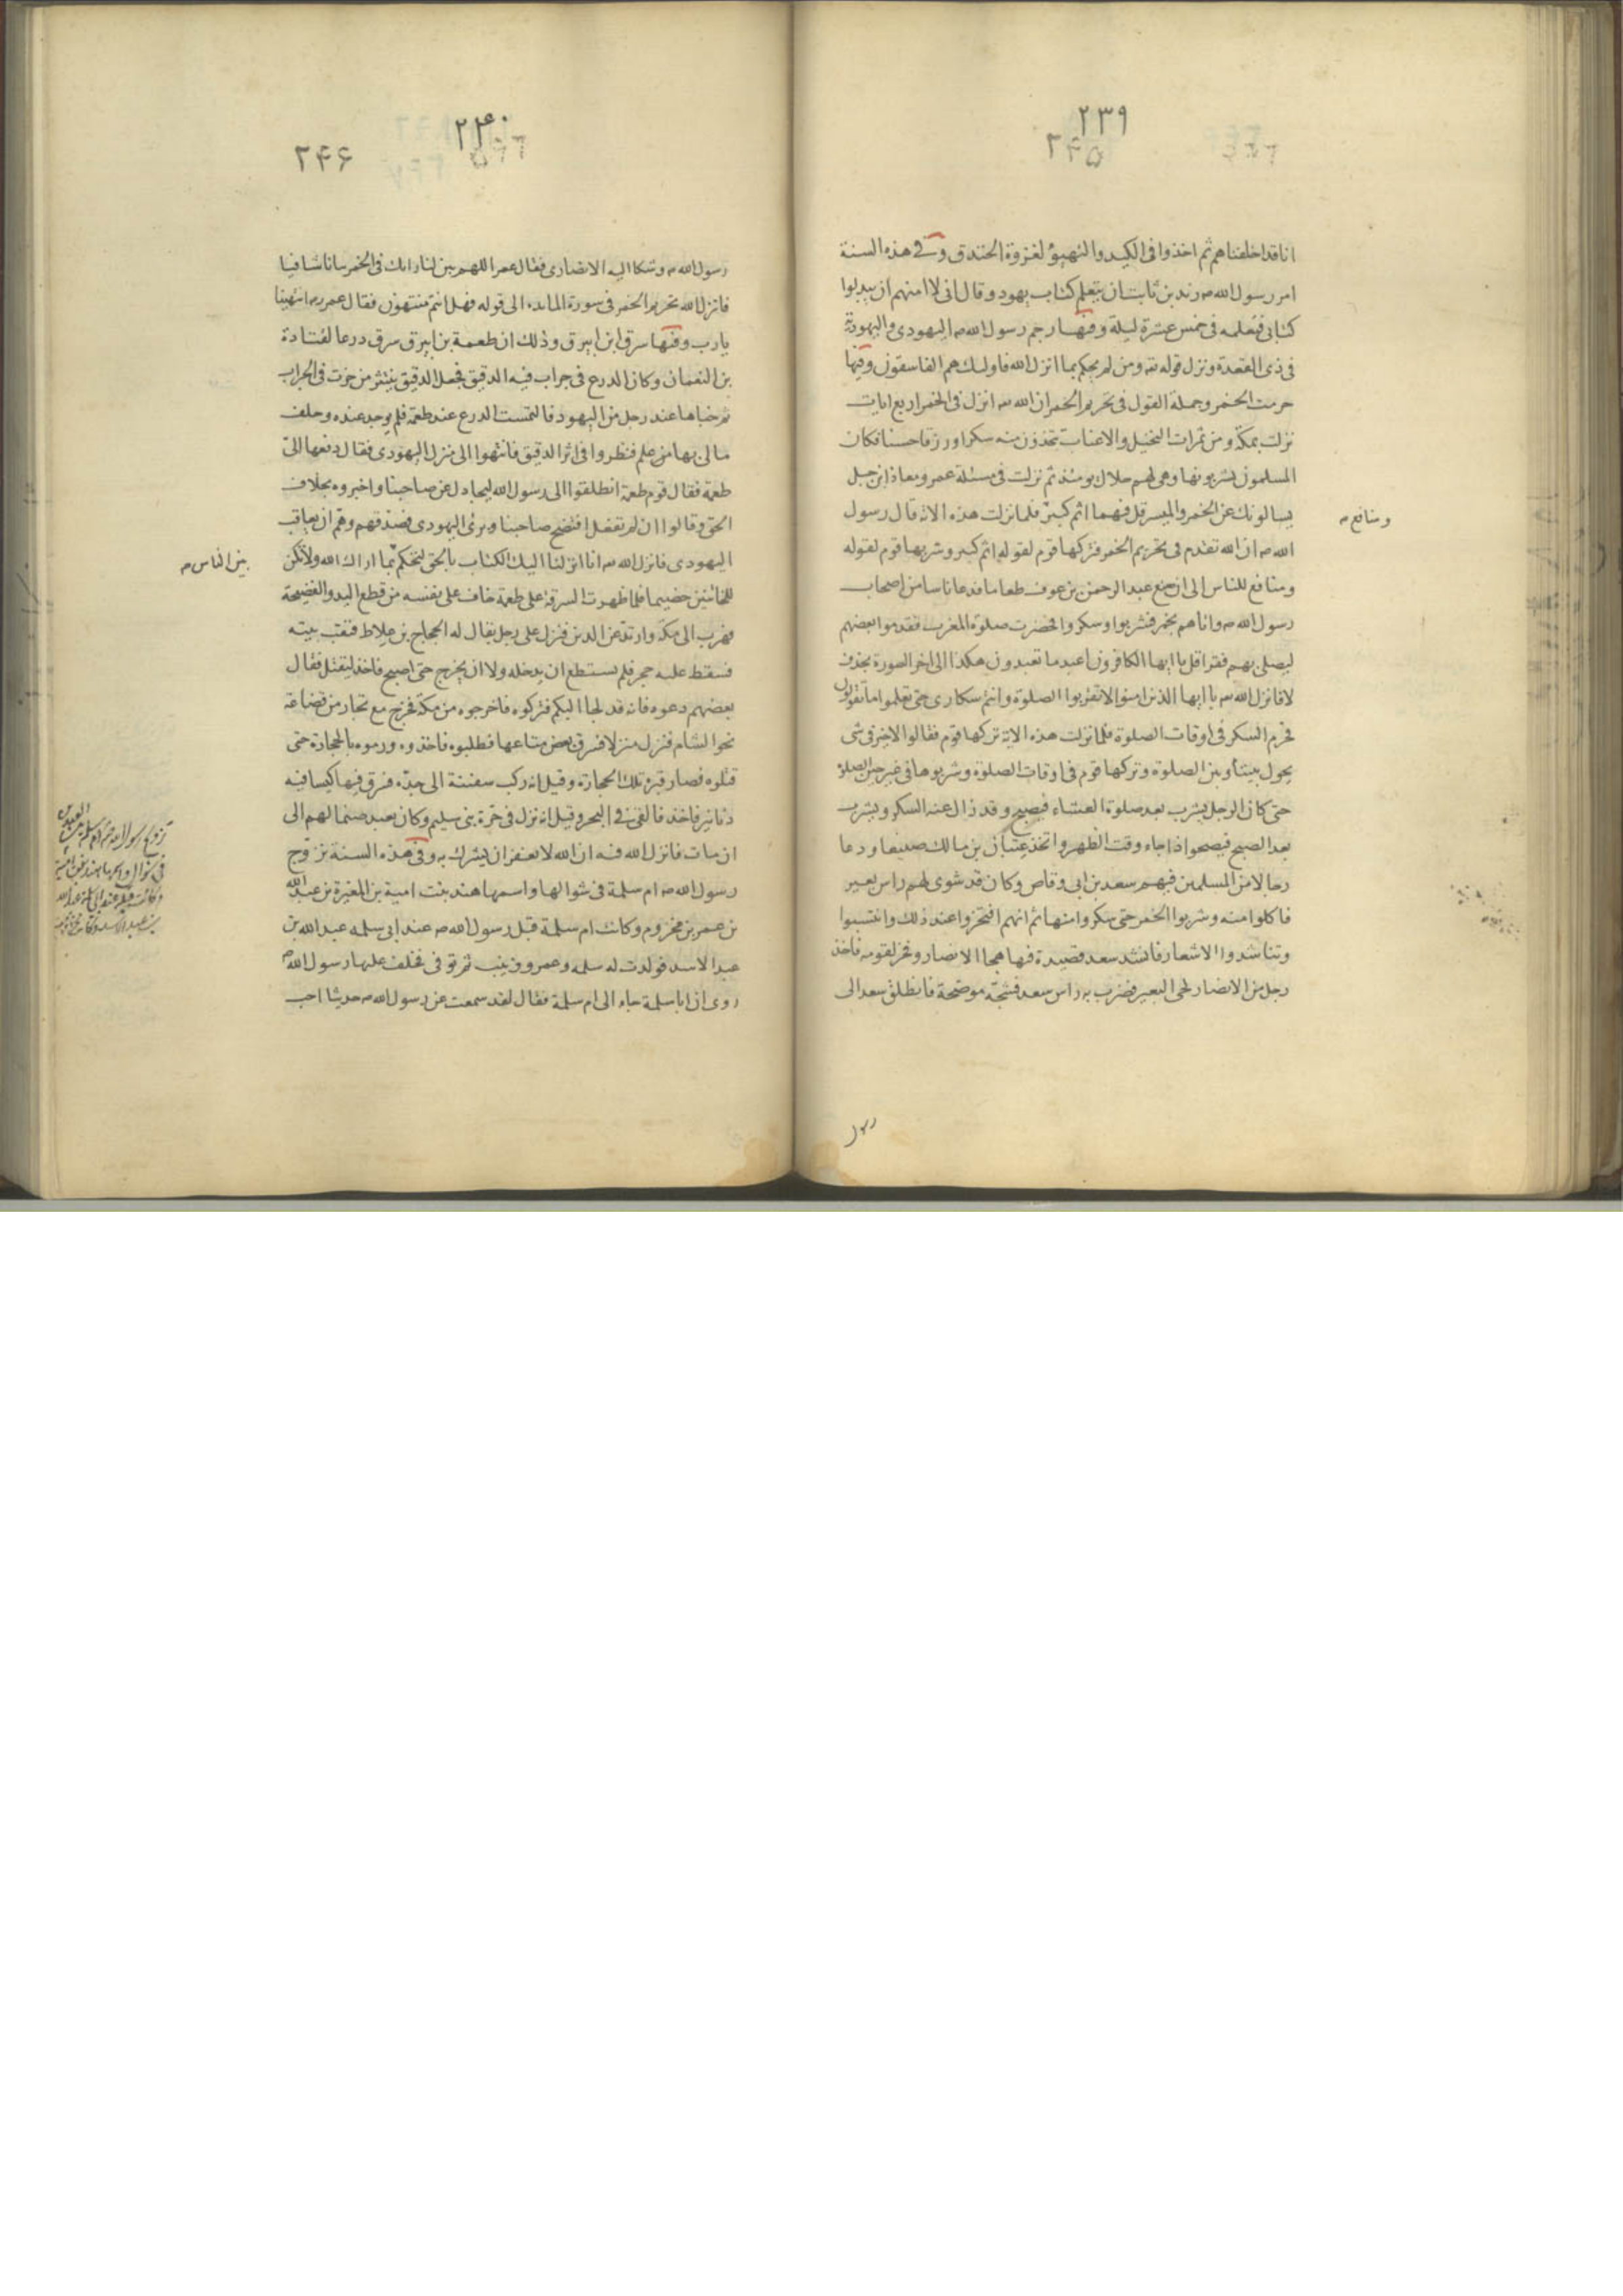 ٢٣٩
٢۴۵
انا قد اخلفناهم ثم اخذوا فى الكيد والتهيؤ لغزوة الخندق وفي هذه السنة
امر رسول الله ص زيد بن ثابت ان يتعلم كتاب يهود وقال انى لا امنهم ان يبدلوا
كتابى فتعلمه فى خمس عشرة ليلة وفيها رجم رسول الله ص اليهودى واليهودية
فى ذى القعدة ونزل قوله تعالى ومن لم يحكم بما انزل الله فاولئك هم الفاسقون وفيها
حرمت الخمر وجملة القول فى تحريم الخمر ان الله تع انزل فى الخمر اربع ايات
نزلت بمكة ومن ثمرات النخيل والاعناب تتخذون منه سكرا ورزقا حسنا فكان
المسلمون يشربونها وهى لهم حلال يومئذ ثم نزلت فى مسئلة عمر ومعاذ ابن جبل
يسالونك عن الخمر والميسر قل فيهما اثم كبير فلما نزلت هذه الاية قال رسول
ومنافع ص
الله ص ان الله تقدم فى تحريم الخمر فتركها قوم لقوله اثم كبير وشربها قوم لقوله
ومنافع للناس الى ان صنع عبد الرحمن بن عوف طعاما فدعا ناسا من اصحاب
رسول الله ص واتاهم بخمر فشربوا وسكروا فحضرت صلوة المغرب فقدموا بعضهم
ليصلى بهم فقرا قل يا ايها الكافرون اعبد ما تعبدون هكذا الى اخر السورة بحذف
لا فانزل الله تع يا ايها الذين امنوا لا تقربوا الصلوة وانتم سكارى حتى تعلموا ما تقولون
فحرم السكر فى اوقات الصلوة فلما نزلت هذه الاية تركها قوم فقالوا لا خير فى شى
يحول بيننا وبين الصلوة وتركها قوم فى اوقات الصلوة وشربوها فى غير حين الصلوة
حتى كان الرجل يشرب بعد صلوة العشاء فيصبح وقد زال عنه السكر ويشرب
بعد الصبح فيصحوا اذا جاء وقت الظهر واتخذ عتبان بن مالك صنيعا ودعا
رجالا من المسلمين فيهم سعد بن ابى وقاص وكان قد شوى لهم راس بعير
فاكلوا منه وشربوا الخمر حتى سكروا منها ثم انهم افتخروا عند ذلك وانتسبوا
وتناشدوا الاشعار فانشد سعد قصيدة فيها هجا الانصار وفخر لقومه فاخذ
رجل من الانصار لحى البعير فضرب به راس سعد فشجه موضحة فانطلق سعد الى
رسول
٢۴٠
٢۴۶
رسول الله ص وشكا اليه الانصارى فقال عمر اللهم بين لنا رايك فى الخمر بيانا شافيا
فانزل الله تحريم الخمر فى سورة المايده الى قوله فهل انتم منتهون فقال عمر رض انتهينا
يارب وفيها سرق ابن ابيرق وذلك ان طعمة بن ابيرق سرق درعا لقتادة
بن النعمان وكان الدرع فى جراب فيه الدقيق فجعل الدقيق ينتثر من خرت فى الجراب
ثم خباها عند رجل من اليهود فالتمست الدرع عند طعمة فلم يوجد عنده وحلف
مالى بها من علم فنظروا فى اثر الدقيق فانتهوا الى منزل اليهودى فقال دفعها الىّ
طعمة فقال قوم طعمة انطلقوا الى رسول الله ليجادل عن صاحبنا واخبروه بخلاف
الحق وقالوا ان لم تفعل افتضح صاحبنا وبرئ اليهودى فصدقهم وهم ان يعاقب
اليهودى فانزل الله تع انا انزلنا اليك الكتاب بالحق لتحكم بما اراك الله ولا تكن
بين الناس ص
للخائنين خصيما فلما ظهرت السرقة على طعمة خاف على نفسه من قطع اليد والفضيحة
فهرب الى مكة وارتد عن الدين فنزل على رجل يقال له الحجاج بن علاط فنقب بيته
فسقط عليه حجر فلم يستطع ان يدخله ولا ان يخرج حتى اصبح فاخذ ليقتل فقال
بعضهم دعوه فانه قد لجا اليكم فتركوه فاخرجوه من مكة فخرج مع تجار من قضاعة
نحو الشام فنزل منزلا فسرق بعض متاعها فطلبوه فاخذوه ورموه بالحجارة حتى
قتلوه فصار قبره تلك الحجارة وقيل انه ركب سفينة الى جدة فسرق فيها كيسا فيه
دنانير فاخذ فالقى فى البحر وقيل انه نزل فى حرة بنى سليم وكان يعبد صنما لهم الى
ان مات فانزل الله فيه ان الله لا يغفر ان يشرك به وفى هذه السنة تزوج
رسول الله ص ام سلمة فى شوالها واسمها هند بنت امية بن المغيرة بن عبد الله
بن عمر بن مخزوم وكانت ام سلمة قبل رسول الله ص عند ابى سلمه عبد الله بن
عبد الاسد فولدت له سلمه وعمر وزينب ثم توفى فخلف عليها رسول الله ص
روى ان ابا سلمة جاء الى ام سلمة فقال لقد سمعت عن رسول الله ص حديثا احب